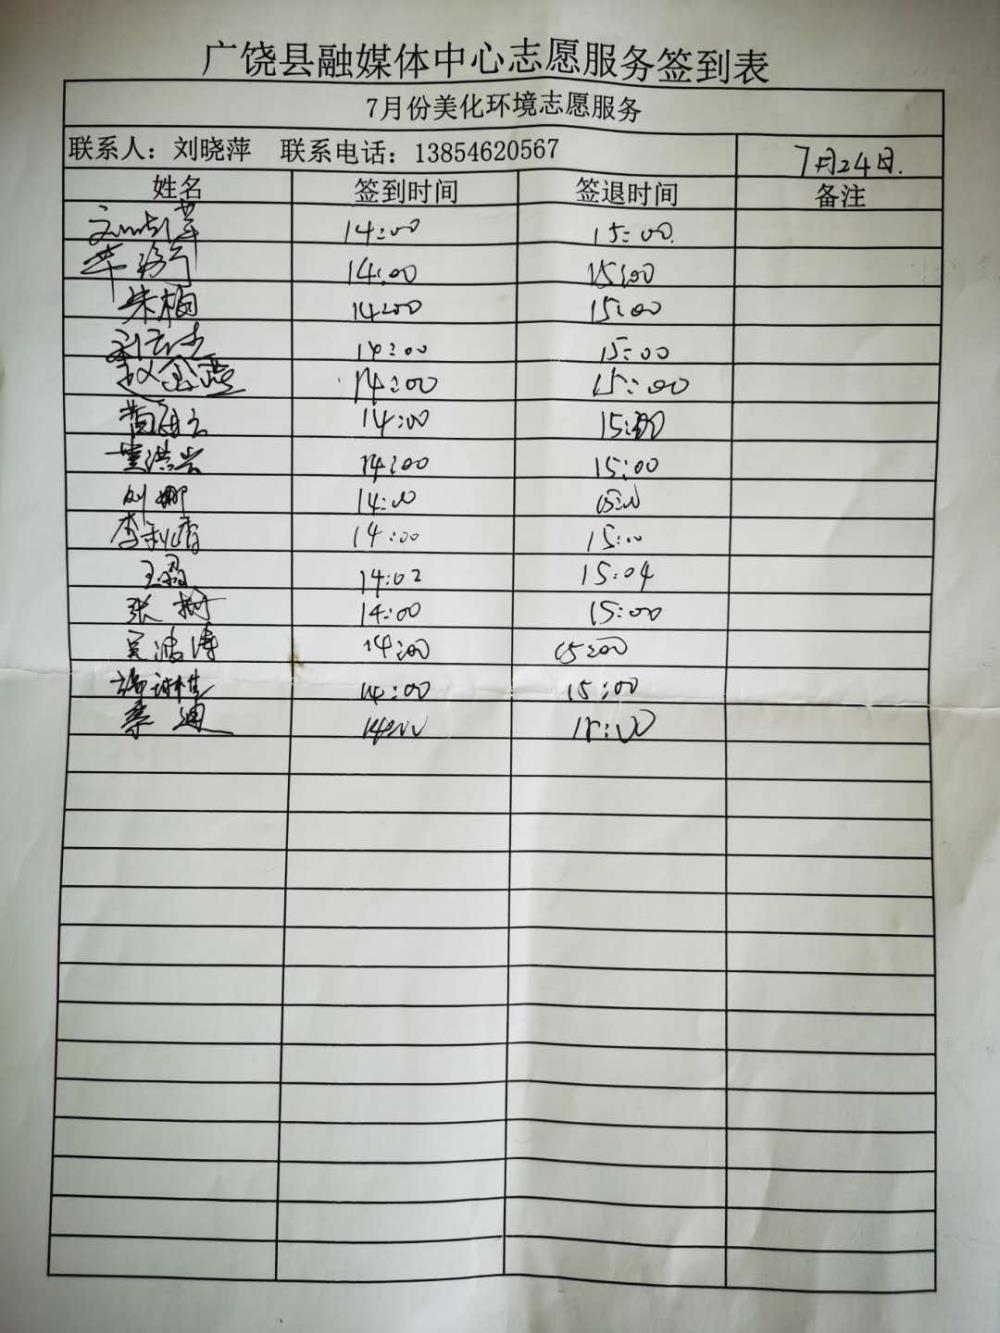 广饶县融媒体中心志愿服务签到表
7月份美化环境志愿服务
联系人：刘晓萍 联系电话：13854620567 7月24日.
姓名 签到时间 签退时间 备注
14:00 15:00
14:00 15:00
朱柏 14:00 15:00
14:00 15:00
赵金燕 14:00 15:00
14:00 15:00
14:00 15:00
刘娜 14:00 15:00
李利清 14:00 15:00
王磊 14:02 15:04
张樹 14:00 15:00
吴波涛 14:00 15:00
14:00 15:00
桑迪 14:00 15:00